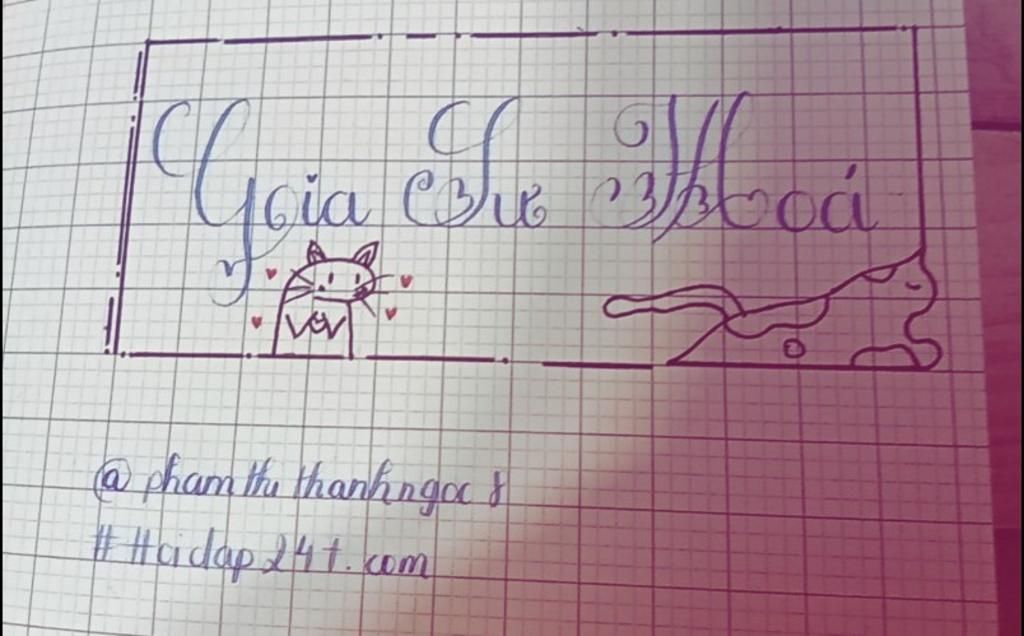 Gia Sư Hoá
@ phamthithanhngoc8
# Hoidap247.com